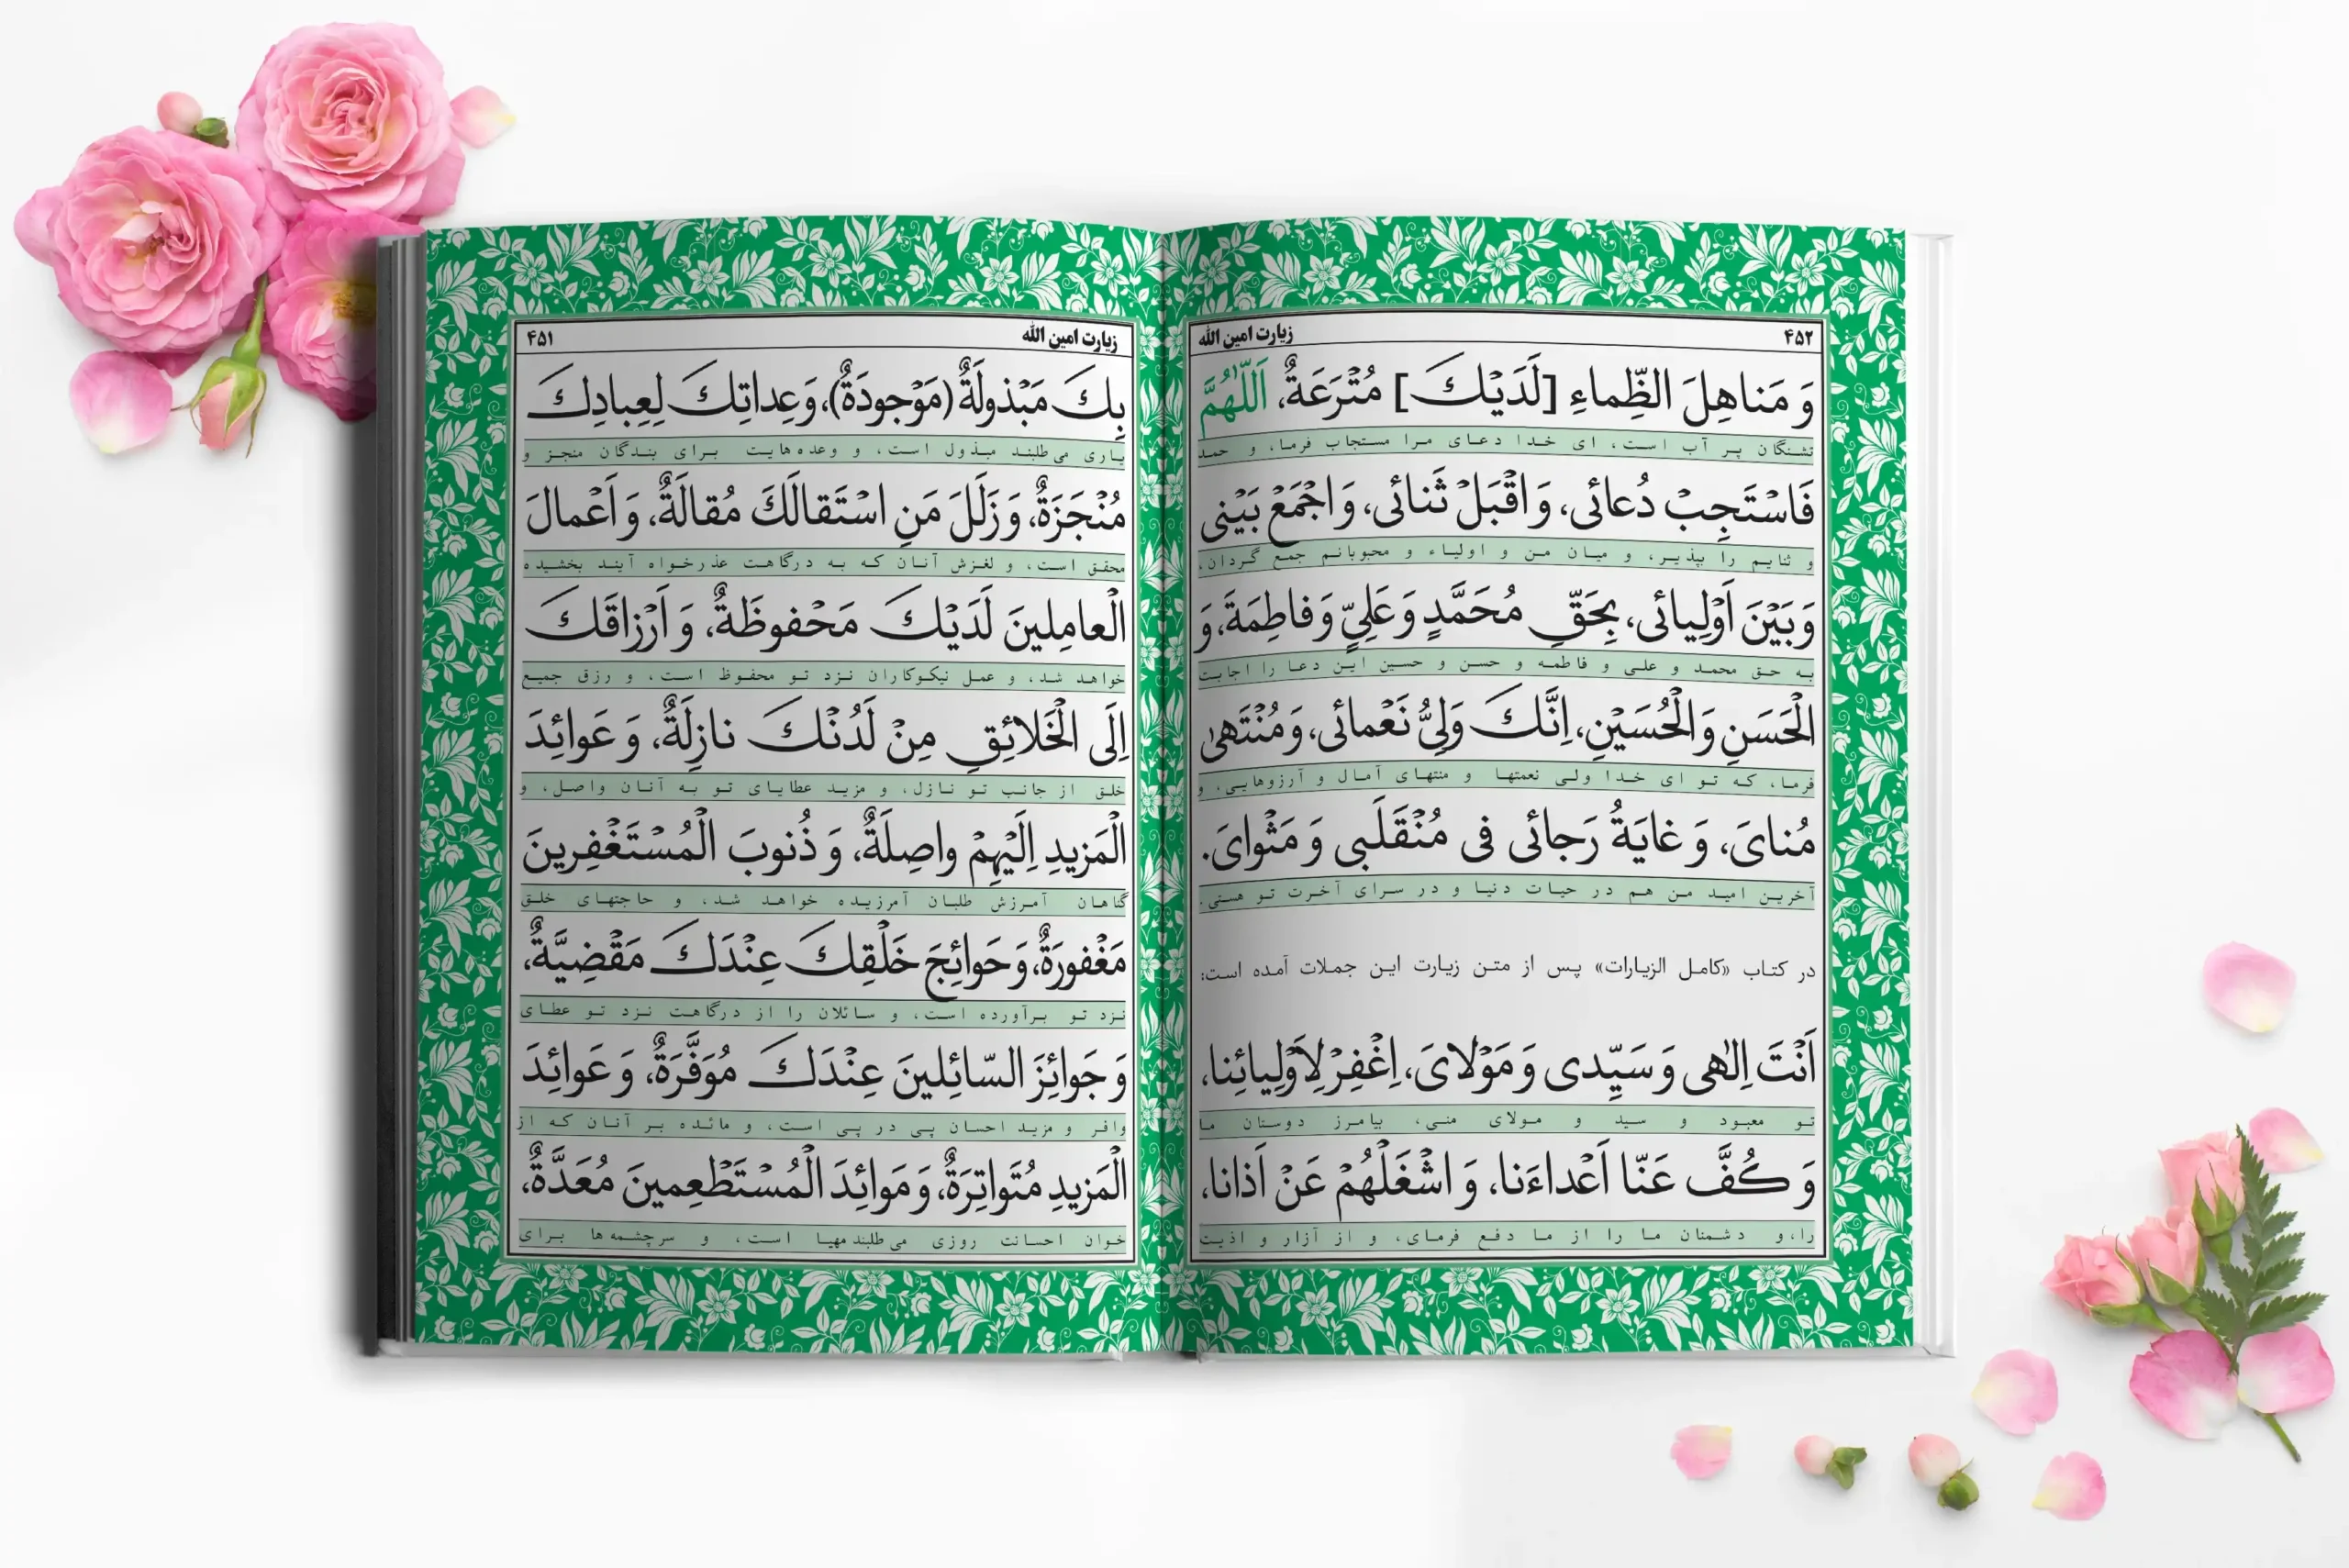 زیارت امین الله ۴۵۱
بِكَ مَبْذولَةٌ (مَوْجودَةٌ)، وَعِداتِكَ لِعِبادِكَ
یاری می‌طلبند مبذول است، و وعده‌هایت برای بندگان منجز و
مُنْجَزَةٌ، وَ زَلَلَ مَنِ اسْتَقالَكَ مُقالَةٌ، وَ اَعْمالَ
محقق است، و لغزش آنان که به درگاهت عذرخواه آیند بخشیده
الْعامِلینَ لَدَیْكَ مَحْفوظَةٌ، وَ اَرْزاقَكَ
خواهد شد، و عمل نیکوکاران نزد تو محفوظ است، و رزق جمیع
اِلَی الْخَلائِقِ مِنْ لَدُنْكَ نازِلَةٌ، وَ عَوائِدَ
خلق از جانب تو نازل، و مزید عطایای تو به آنان واصل، و
الْمَزیدِ اِلَیْهِمْ واصِلَةٌ، وَ ذُنوبَ الْمُسْتَغْفِرینَ
گناهان آمرزش طلبان آمرزیده خواهد شد، و حاجتهای خلق
مَغْفورَةٌ، وَ حَوائِجَ خَلْقِكَ عِنْدَكَ مَقْضِیَّةٌ،
نزد تو برآورده است، و سائلان را از درگاهت نزد تو عطای
وَ جَوائِزَ السّائِلینَ عِنْدَكَ مُوَفَّرَةٌ، وَ عَوائِدَ
وافر و مزید احسان پی در پی است، و مائده بر آنان که از
الْمَزیدِ مُتَواتِرَةٌ، وَ مَوائِدَ الْمُسْتَطْعِمینَ مُعَدَّةٌ،
خوان احسانت روزی می‌طلبند مهیا است، و سرچشمه‌ها برای
۴۵۲ زیارت امین الله
وَ مَناهِلَ الظِّماءِ [لَدَیْكَ] مُتْرَعَةٌ، اَللّٰهُمَّ
تشنگان پر آب است، ای خدا دعای مرا مستجاب فرما، و حمد
فَاسْتَجِبْ دُعائی، وَ اقْبَلْ ثَنائی، وَ اجْمَعْ بَیْنی
و ثنایم را بپذیر، و میان من و اولیاء و محبوبانم جمع گردان،
وَ بَیْنَ اَوْلِیائی، بِحَقِّ مُحَمَّدٍ وَ عَلِیٍّ وَ فاطِمَةَ، وَ
به حق محمد و علی و فاطمه و حسن و حسین این دعا را اجابت
الْحَسَنِ وَ الْحُسَیْنِ، اِنَّكَ وَلِیُّ نَعْمائی، وَ مُنْتَهیٰ
فرما، که تو ای خدا ولی نعمتها و منتهای آمال و آرزوهایی، و
مُنایَ، وَ غایَةُ رَجائی فی مُنْقَلَبی وَ مَثْوایَ.
آخرین امید من هم در حیات دنیا و در سرای آخرت تو هستی.
در کتاب «کامل الزیارات» پس از متن زیارت این جملات آمده است:
اَنْتَ اِلٰهی وَ سَیِّدی وَ مَوْلایَ، اِغْفِرْ لِاَوْلِیائِنا،
تو معبود و سید و مولای منی، بیامرز دوستان ما
وَ كُفَّ عَنّا اَعْداءَنا، وَ اشْغَلْهُمْ عَنْ اَذانا،
را، و دشمنان ما را از ما دفع فرمای، و از آزار و اذیت